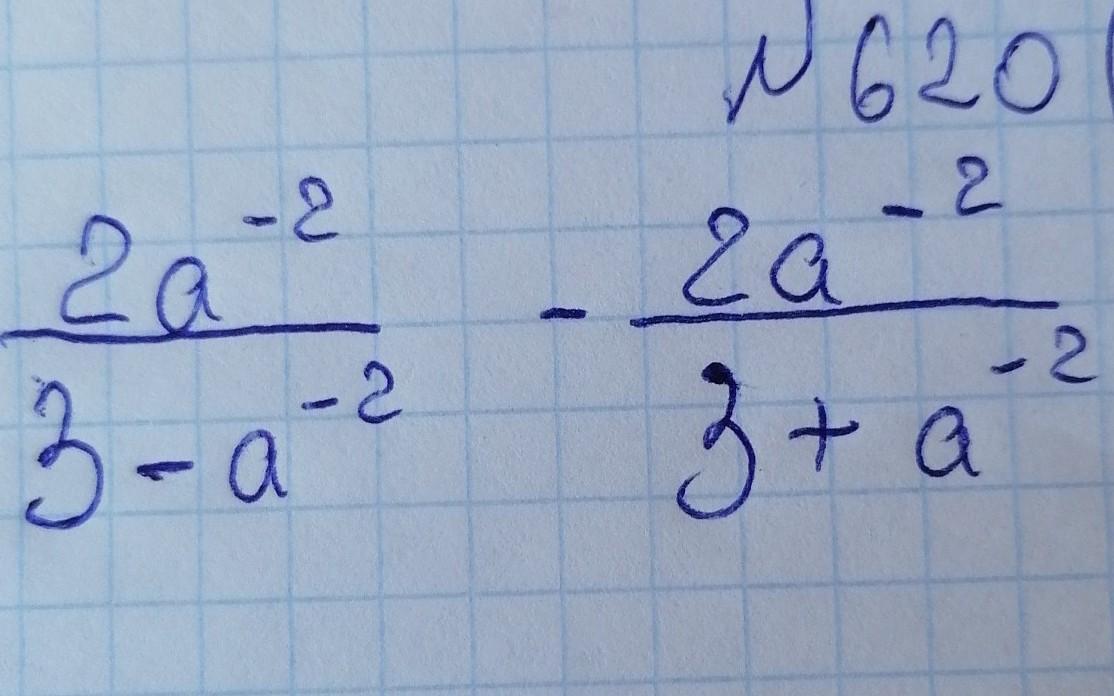 № 620
2a⁻² / 3 - a⁻² - 2a⁻² / 3 + a⁻²